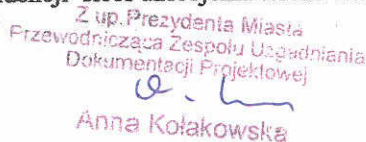 Z up. Prezydenta Miasta
Przewodnicząca Zespołu Uzgadniania
Dokumentacji Projektowej
Anna Kołakowska